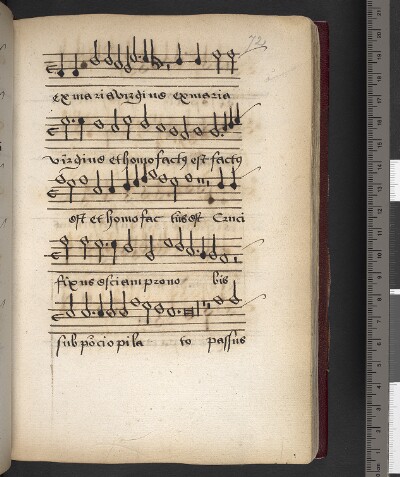 72
ex maria virgine ex maria
virgine et homo factus est factus
est et homo fac tus est Cruci
fixus esciam pro no bis
sub pocio pila to passus